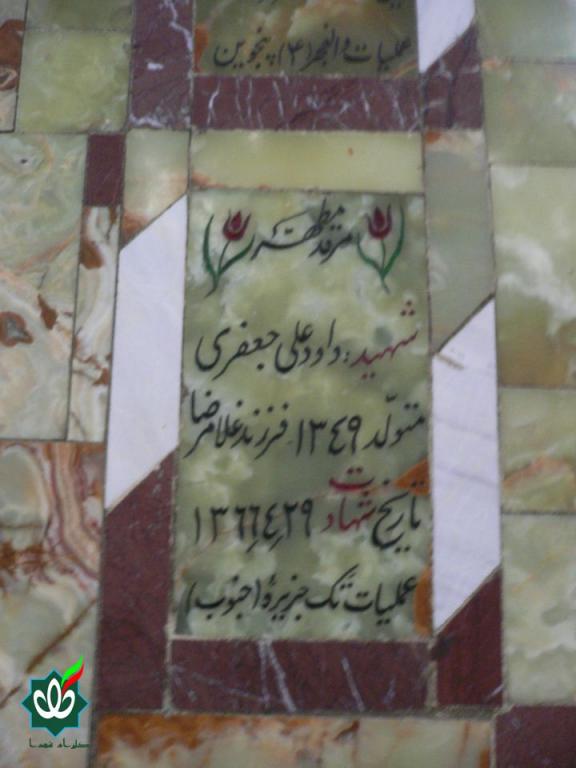 عملیات والفجر (۴) پنجوین
مرقد مطهر
شهید: داود علی جعفری
متولّد ۱۳۴۹ فرزند غلامرضا
تاریخ شهادت ۱۳۶۶٫۴٫۲۹
عملیات تک جزیرهٔ (جنوب)
گلزار شهدا